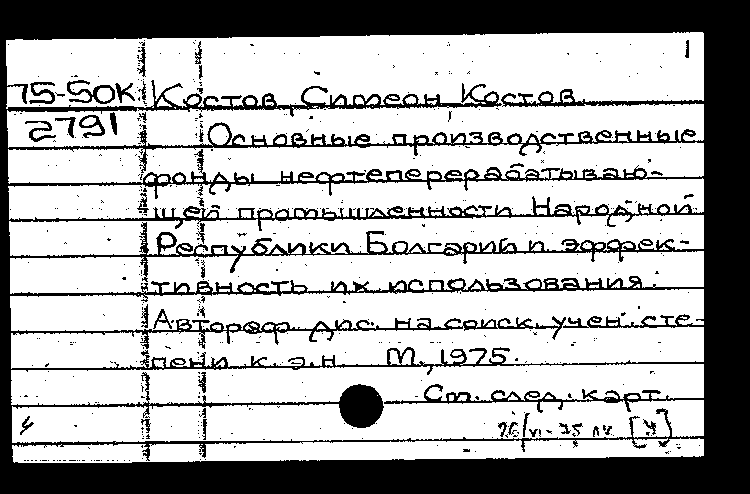 1
75-50К Костов, Симеон Костов.
2791 Основные производственные
фонды нефтеперерабатываю-
щей промышленности Народной
Республики Болгарии и эффек-
тивность их использования.
Автореф. дис. на соиск. учен. сте-
пени к. э. н. М., 1975.
См. след. карт.
26/VI-75 [4]